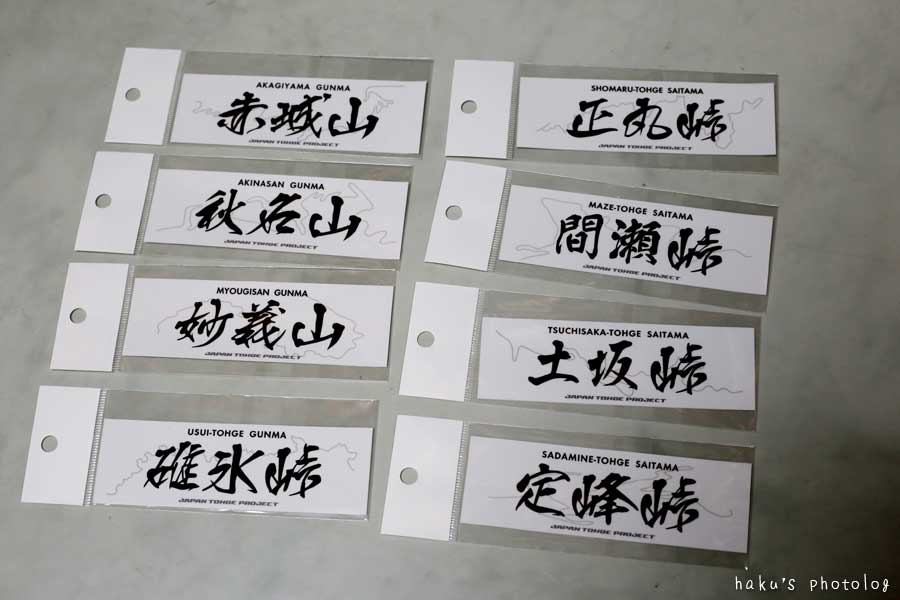 AKAGIYAMA GUNMA
赤城山
JAPAN TOHGE PROJECT
AKINASAN GUNMA
秋名山
JAPAN TOHGE PROJECT
MYOUGISAN GUNMA
妙義山
JAPAN TOHGE PROJECT
USUI-TOHGE GUNMA
碓氷峠
JAPAN TOHGE PROJECT
SHOMARU-TOHGE SAITAMA
正丸峠
JAPAN TOHGE PROJECT
MAZE-TOHGE SAITAMA
間瀬峠
JAPAN TOHGE PROJECT
TSUCHISAKA-TOHGE SAITAMA
土坂峠
JAPAN TOHGE PROJECT
SADAMINE-TOHGE SAITAMA
定峰峠
JAPAN TOHGE PROJECT
haku's photolog